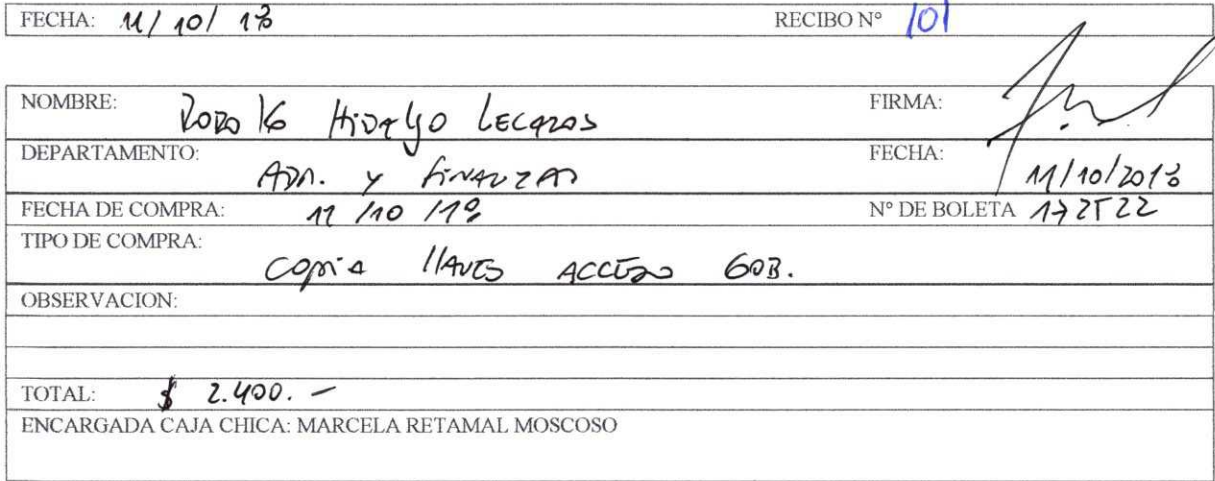 FECHA: 11/10/18 RECIBO Nº 101
NOMBRE: Hidalgo Lecaros FIRMA:
DEPARTAMENTO: Adm. y Finanzas FECHA: 11/10/2018
FECHA DE COMPRA: 11/10/18 Nº DE BOLETA 172522
TIPO DE COMPRA: Copia llaves acceso GOB.
OBSERVACION:
TOTAL: $ 2.400.-
ENCARGADA CAJA CHICA: MARCELA RETAMAL MOSCOSO